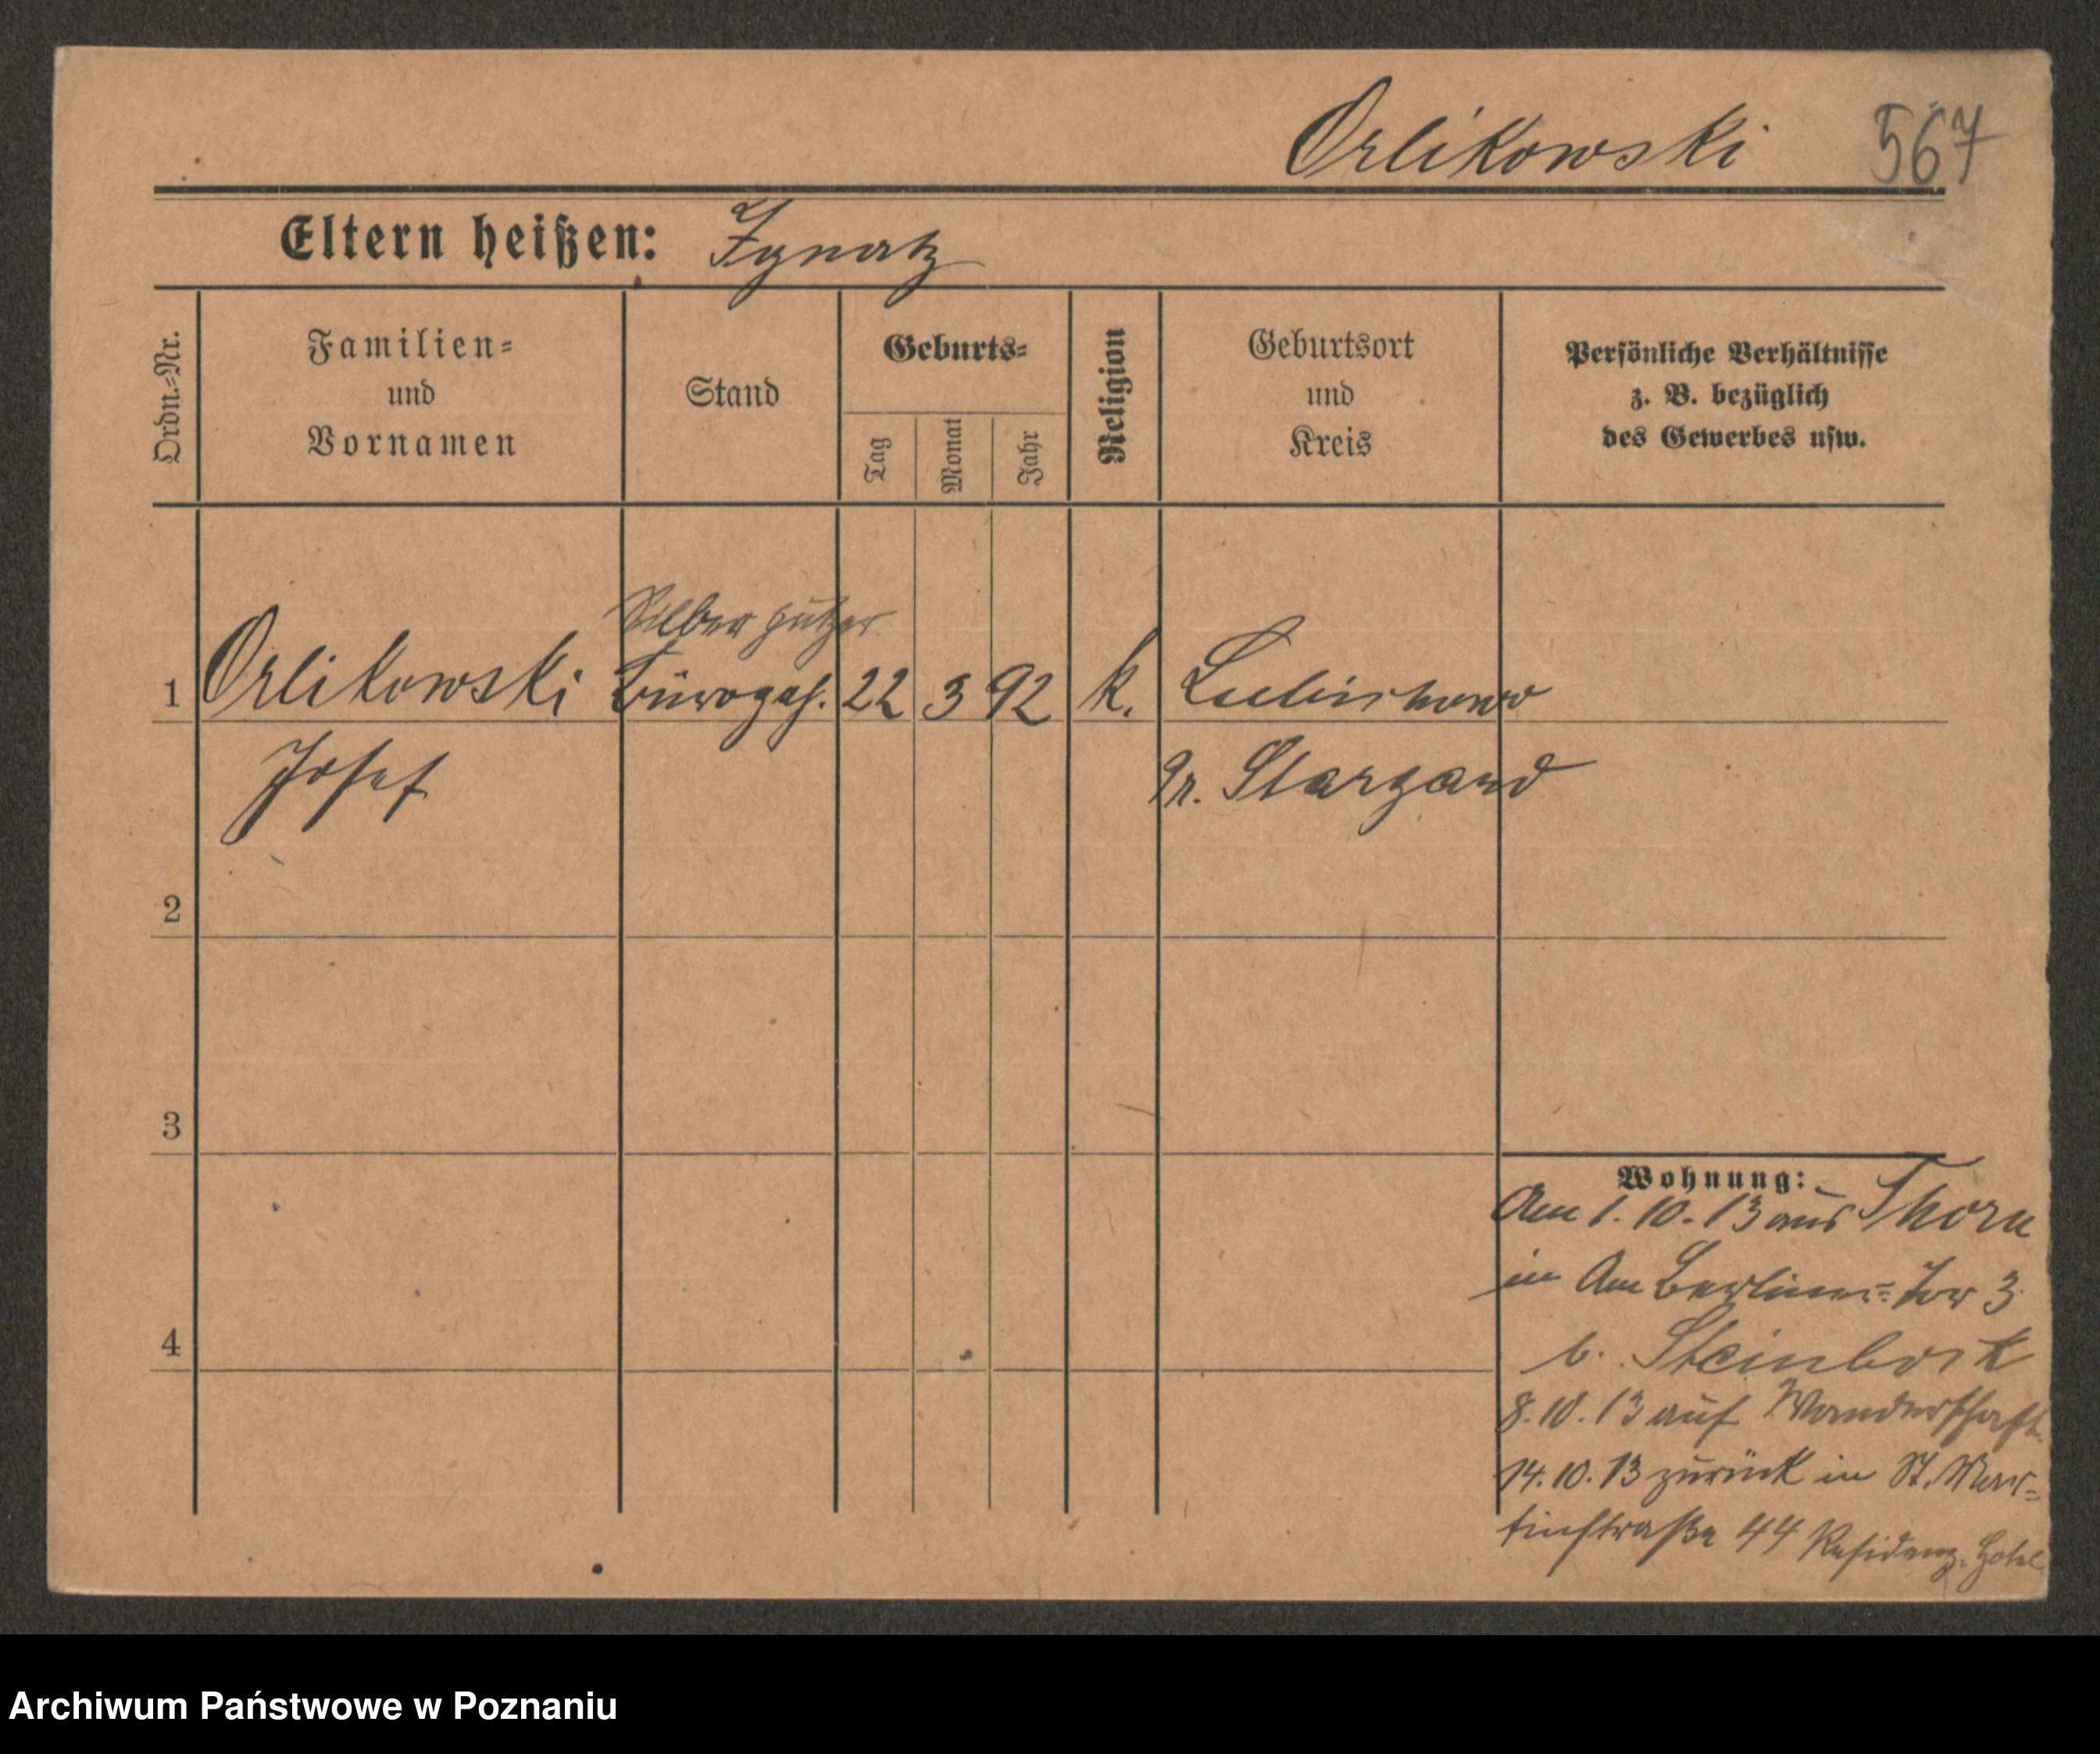 Orlikowski 567
Eltern heißen: Ignatz
Ordn.=Nr.
Familien=
und
Vornamen
Stand
Geburts=
Tag
Monat
Jahr
Religion
Geburtsort
und
Kreis
Persönliche Verhältnisse
z. B. bezüglich
des Gewerbes usw.
Silberputzer
1 Orlikowski Bürogeh. 22 3 92 k. Lubichowo
Josef Pr. Stargard
2
3
4
Wohnung:
Am 1.10.13 aus Thorn
in Am Berliner=Tor 3
b. Steinbock
8.10.13 auf Wanderschaft
14.10.13 zurück in St. Mar=
tinstraße 44 Residenz=Hotel
Archiwum Państwowe w Poznaniu